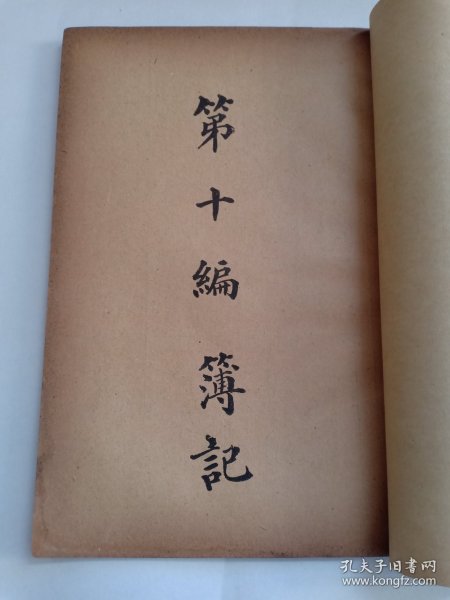 第十編簿記
孔夫子旧书网
www.kongfz.com